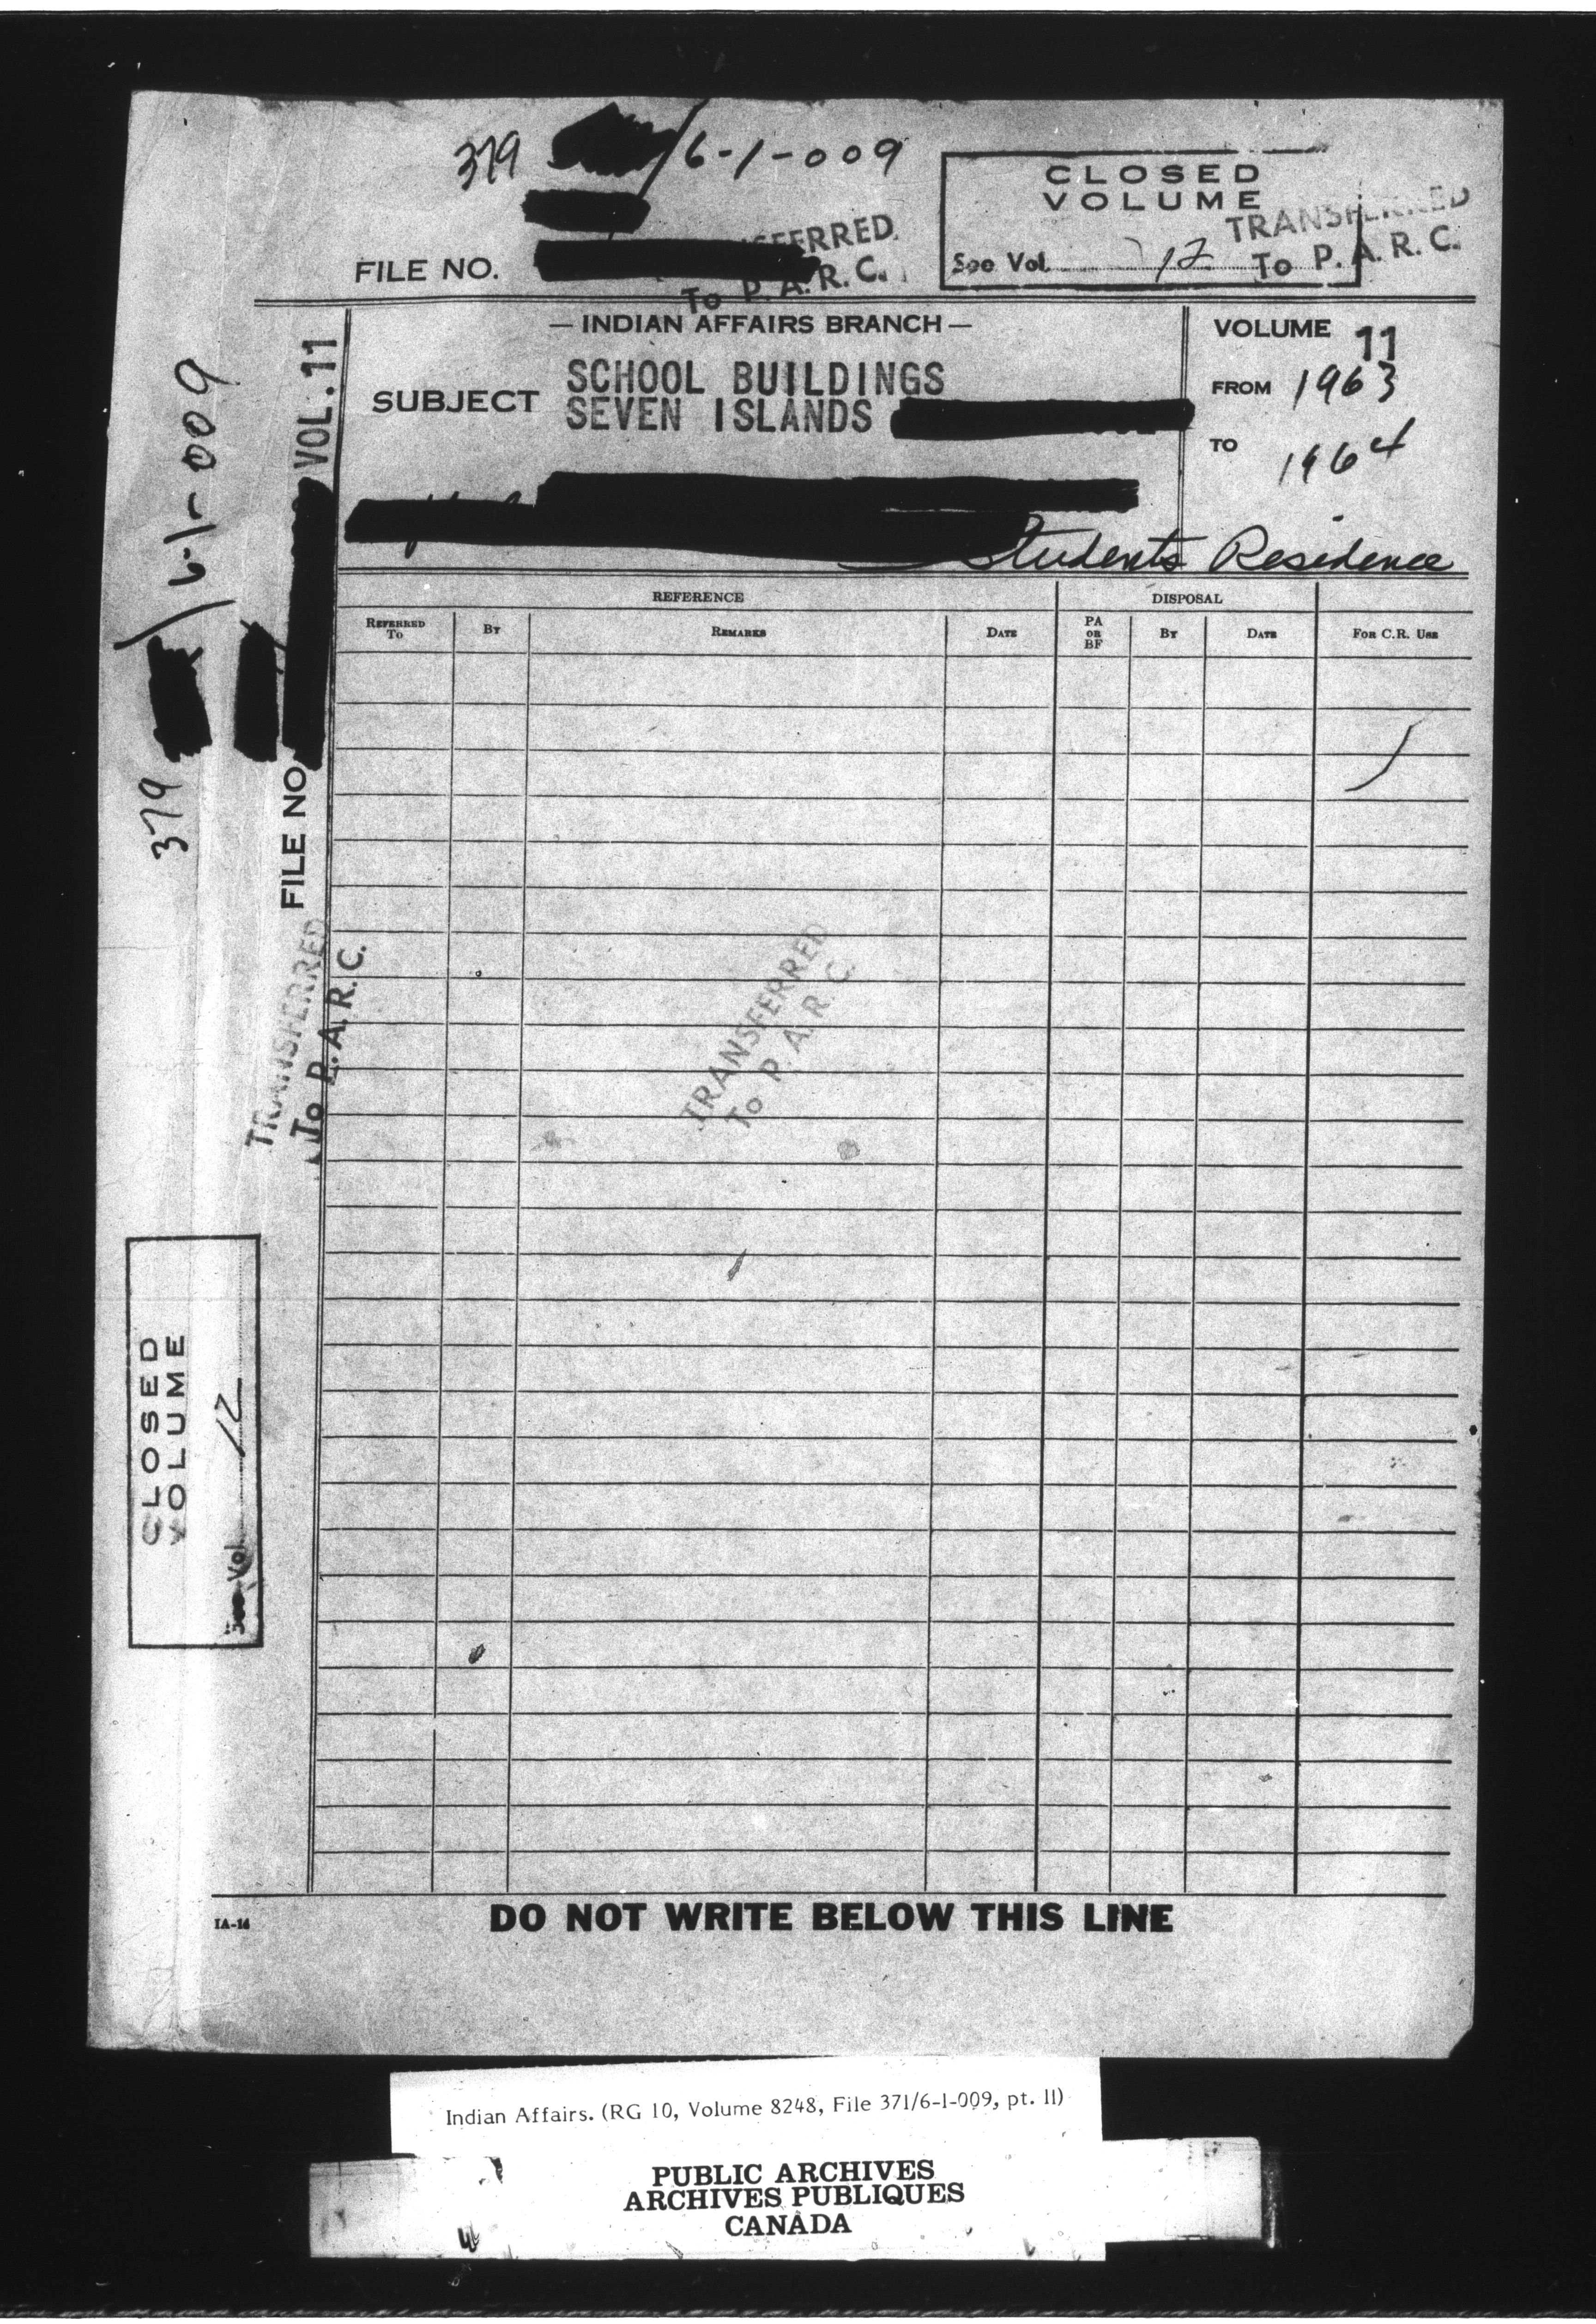 379 /6-1-009
CLOSED
VOLUME
See Vol. 12
TRANSFERRED
To P.A.R.C.
FILE NO.
To P.A.R.C.
— INDIAN AFFAIRS BRANCH —
SUBJECT
SCHOOL BUILDINGS
SEVEN ISLANDS
Students Residence
VOLUME 11
FROM 1963
TO 1964
REFERENCE DISPOSAL
REFERRED TO BY REMARKS DATE PA OR BF BY DATE FOR C.R. USE
379 /6-1-009
FILE NO. VOL. 11
TRANSFERRED
To P.A.R.C.
TRANSFERRED
To P.A.R.C.
CLOSED
VOLUME
See Vol. 12
IA-14
DO NOT WRITE BELOW THIS LINE
Indian Affairs. (RG 10, Volume 8248, File 371/6-1-009, pt. 11)
PUBLIC ARCHIVES
ARCHIVES PUBLIQUES
CANADA